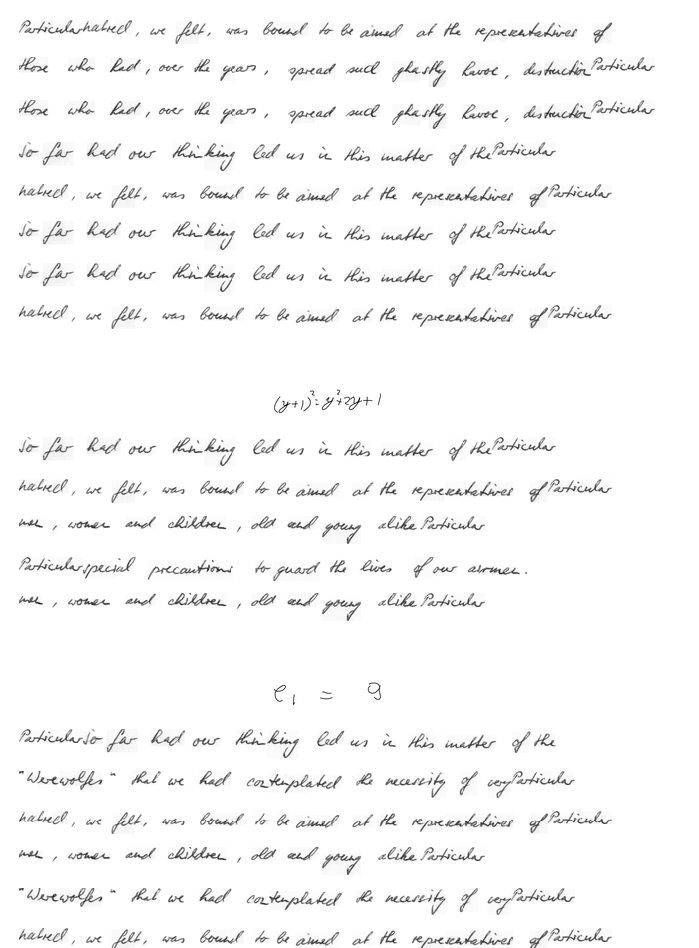 Particular hatred, we felt, was bound to be aimed at the representatives of
those who had, over the years, spread such ghastly havoc, destruction Particular
those who had, over the years, spread such ghastly havoc, destruction Particular
So far had our thinking led us in this matter of the Particular
hatred, we felt, was bound to be aimed at the representatives of Particular
So far had our thinking led us in this matter of the Particular
So far had our thinking led us in this matter of the Particular
hatred, we felt, was bound to be aimed at the representatives of Particular
(y+1)²=y²+2y+1
So far had our thinking led us in this matter of the Particular
hatred, we felt, was bound to be aimed at the representatives of Particular
men, women and children, old and young alike Particular
Particular special precautions to guard the lives of our airmen.
men, women and children, old and young alike Particular
e₁ = 9
Particular So far had our thinking led us in this matter of the
"Werewolfes" that we had contemplated the necessity of very Particular
hatred, we felt, was bound to be aimed at the representatives of Particular
men, women and children, old and young alike Particular
"Werewolfes" that we had contemplated the necessity of very Particular
hatred, we felt, was bound to be aimed at the representatives of Particular